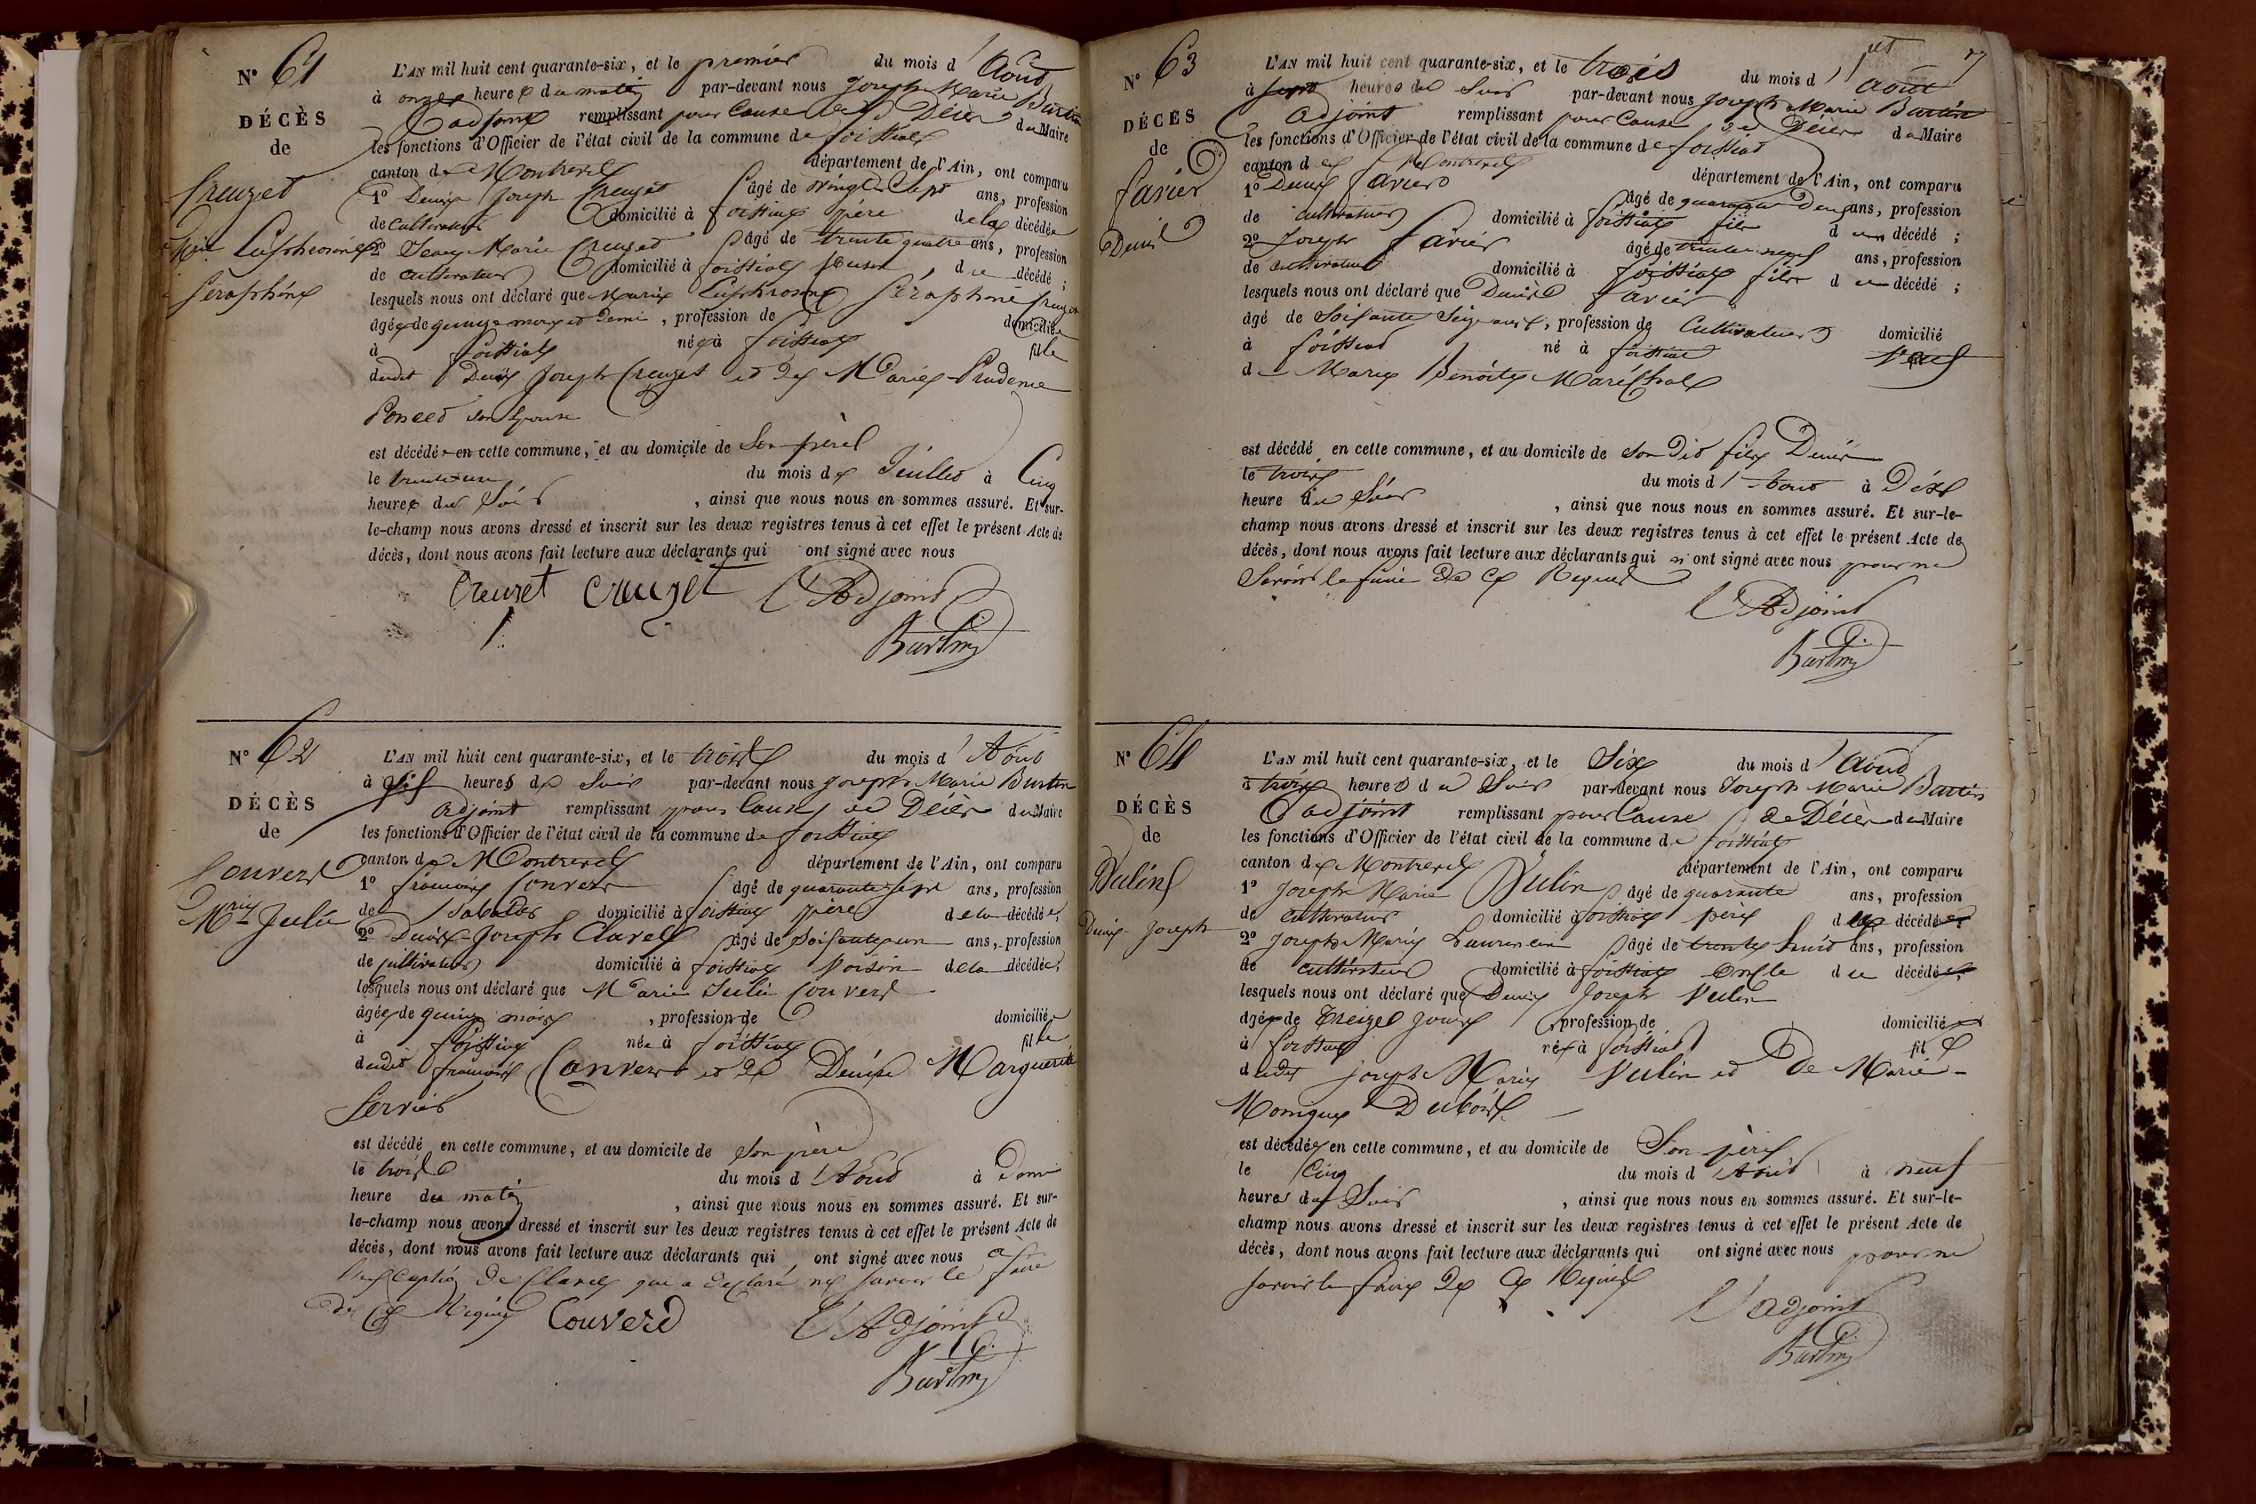 N° 61
DÉCÈS
de
Creuzet
Mie Euphrosine
Séraphine
L'AN mil huit cent quarante-six, et le premier du mois d'Août
à onze heures du matin par-devant nous Joseph Marie Burtin
adjoint remplissant pour cause de Décès du Maire
les fonctions d'Officier de l'état civil de la commune de foissiat
canton de Montrevel département de l'Ain, ont comparu
1° Denis Joseph Creuzet âgé de vingt sept ans, profession
de cultivateur domicilié à foissiat père de la décédée
2° Jean Marie Creuzet âgé de trente quatre ans, profession
de cultivateur domicilié à foissiat du décédé ;
lesquels nous ont déclaré que Marie Euphrosine Séraphine Creuzet
âgée de quinze mois et demi , profession de domiciliée
à foissiat née à foissiat fille
dudit Denis Joseph Creuzet et de Marie Prudence
Poncet son épouse
est décédée en cette commune, et au domicile de son père
le trente un du mois de Juillet à Cinq
heures du Soir , ainsi que nous nous en sommes assuré. Et sur-
le-champ nous avons dressé et inscrit sur les deux registres tenus à cet effet le présent Acte de
décès, dont nous avons fait lecture aux déclarants qui ont signé avec nous
Creuzet Creuzet L'Adjoint
Burtin
N° 62
DÉCÈS
de
Convert
Marie Julie
L'AN mil huit cent quarante-six, et le trois du mois d'Août
à six heures du Soir par-devant nous Joseph Marie Burtin
adjoint remplissant pour Cause de Décès du Maire
les fonctions d'Officier de l'état civil de la commune de foissiat
canton de Montrevel département de l'Ain, ont comparu
1° françois Convert âgé de quarante sept ans, profession
de domicilié à foissiat père de la décédée,
2° Denis Joseph Clavel âgé de soissante un ans, profession
de cultivateur domicilié à foissiat Voisin de la décédée;
lesquels nous ont déclaré que Marie Julie Convert
âgée de quinze mois , profession de domiciliée
à foissiat née à foissiat fille
dudit françois Convert et de Denise Marguerite
Servies
est décédé en cette commune, et au domicile de son père
le trois du mois d'Août à
heure du matin , ainsi que nous nous en sommes assuré. Et sur-
le-champ nous avons dressé et inscrit sur les deux registres tenus à cet effet le présent Acte de
décès, dont nous avons fait lecture aux déclarants qui ont signé avec nous a
l'exception de Clavel qui a déclaré ne savoir le faire
de ce Requis Couverd L'Adjoint
Burtin
N° 63
DÉCÈS
de
favier
Denis
L'AN mil huit cent quarante-six, et le trois du mois d'août
à sept heures du Soir par-devant nous Joseph Marie Burtin
adjoint remplissant pour Cause de Décès du Maire
les fonctions d'Officier de l'état civil de la commune de foissiat
canton de Montrevel département de l'Ain, ont comparu
1° Denis favier âgé de quarante Deux ans, profession
de cultivateur domicilié à foissiat fils du décédé ;
2° Joseph favier âgé de trente neuf ans, profession
de cultivateur domicilié à foissiat fils du décédé ;
lesquels nous ont déclaré que Denis favier
âgé de soissante Seize ans , profession de Cultivateur domicilié
à foissiat né à foissiat Veuf
de Marie Benoite Maréchal
est décédé en cette commune, et au domicile de son dit fils Denis
le trois du mois d'Août à Dix
heure du , ainsi que nous nous en sommes assuré. Et sur-le-
champ nous avons dressé et inscrit sur les deux registres tenus à cet effet le présent Acte de
décès, dont nous avons fait lecture aux déclarants qui n'ont signé avec nous pour ne
Savoir le faire de ce Requis
L'Adjoint
Burtin
N° 64
DÉCÈS
de
Vulin
Denis Joseph
L'AN mil huit cent quarante-six, et le Six du mois d'août
à trois heures du Soir par-devant nous Joseph Marie Burtin
adjoint remplissant pour Cause de Décès du Maire
les fonctions d'Officier de l'état civil de la commune de foissiat
canton de Montrevel département de l'Ain, ont comparu
1° Joseph Marie Vulin âgé de quarante ans, profession
de cultivateur domicilié à foissiat père du décédé
2° Joseph Marie Laurencin âgé de trente huit ans, profession
de cultivateur domicilié à foissiat oncle du décédé
lesquels nous ont déclaré que Denis Joseph Vulin
âgé de Treize Jours profession de domicilié
à foissiat né à foissiat fil
dudit Joseph Marie Vulin et de Marie
Monique Dubois
est décédé en cette commune, et au domicile de Son père
le Cinq du mois d'Août à neuf
heures du Soir , ainsi que nous nous en sommes assuré. Et sur-le-
champ nous avons dressé et inscrit sur les deux registres tenus à cet effet le présent Acte de
décès, dont nous avons fait lecture aux déclarants qui ont signé avec nous pour ne
savoir le faire de ce Requis
L'adjoint
Burtin